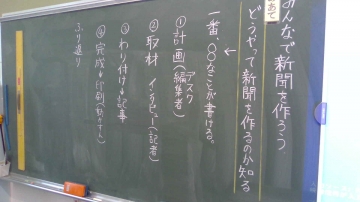 みんなで新聞を作ろう
めあて
どうやって新聞を作るのか知る
一番、○○なことが書ける。
↓
デスク
①計画(編集者)
②取材 インタビュー(記者)
③わり付け→記事
④完成→印刷
ふり返り